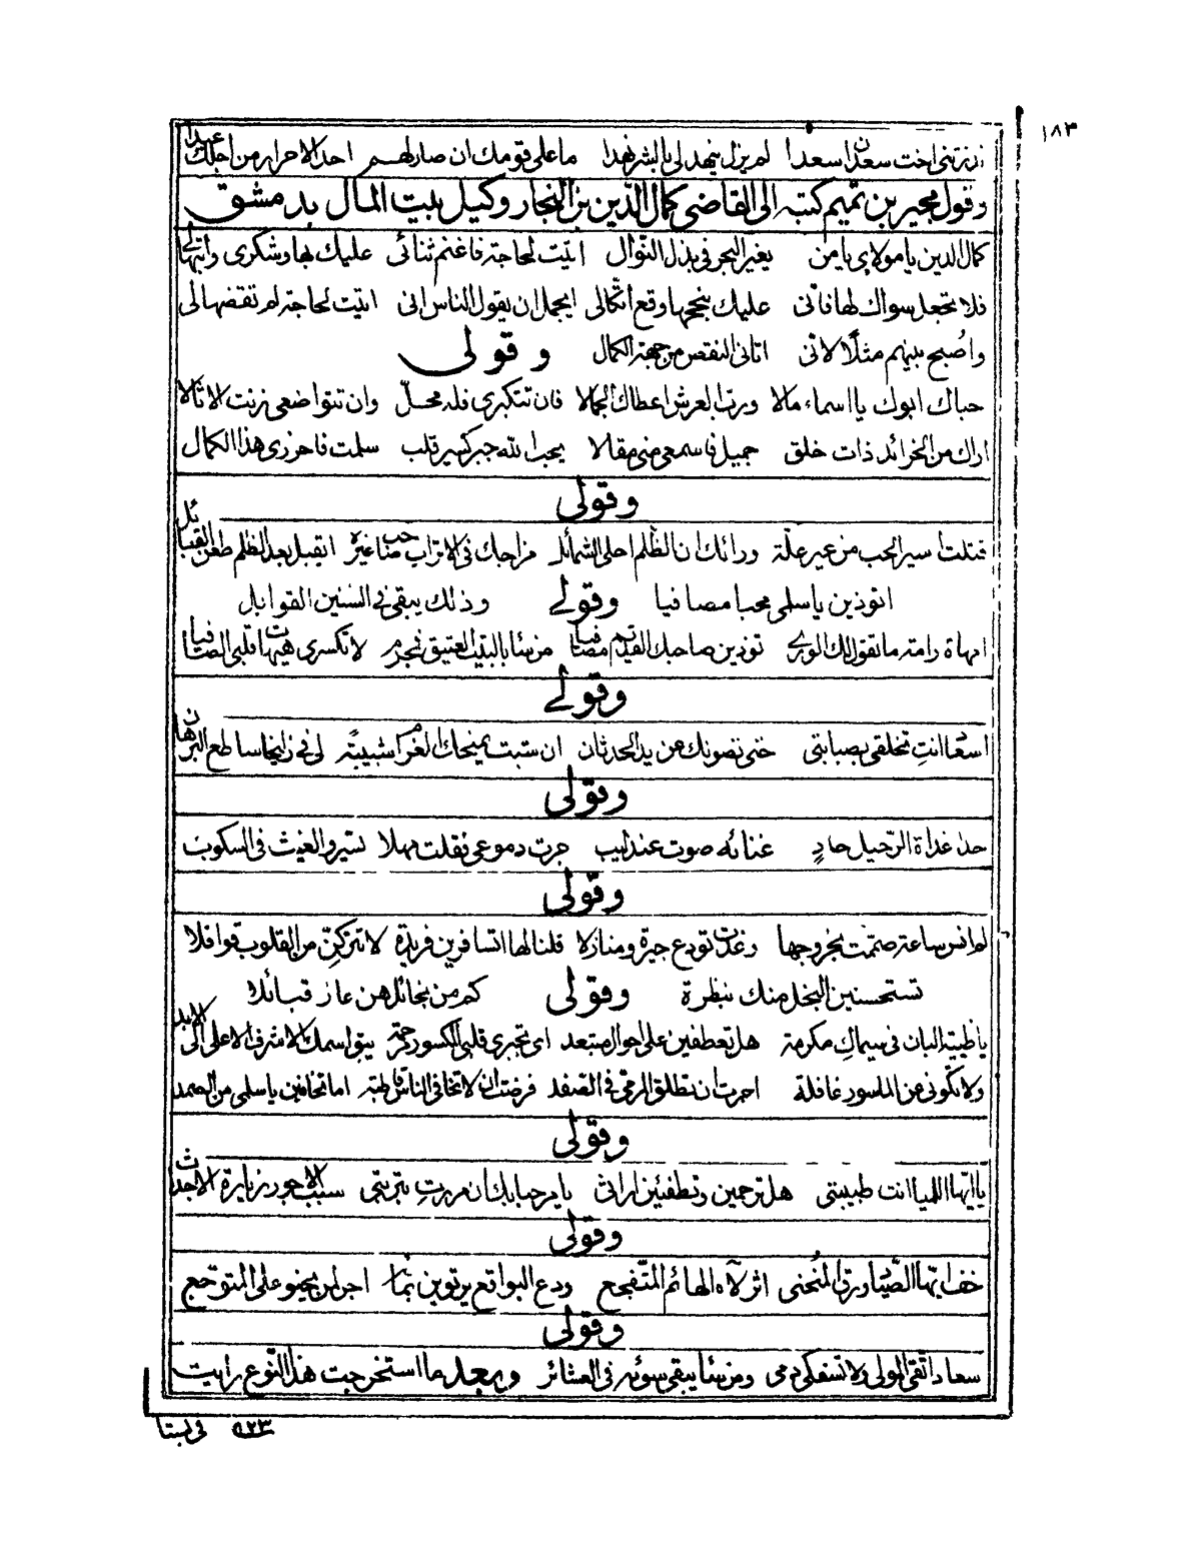 ١٨٣
اذنتنى اخت سعد اسعدا لم يزل ينهد لى بالبشر نهدا ما على قومك ان صار لهم احد الاحرار من اجلك عبدا
وقول مجير بن تميم كتبه الى القاضى كمال الدين بن النجار وكيل بيت المال بدمشق
كمال الدين يا مولاى يا من يغير البحر فى بذل النوال اتيت لحاجة فاغنم ثنائى عليك بها وشكرى وابتهالى
فلا تجعل سواك لها فانى عليك بنجحها وقع اتكالى ايجمل ان يقول الناس انى اتيت لحاجة لم تقضها لى
واصبح بينهم مثلا لانى اتانى النقص من جهة الكمال وقولى
حباك ابوك يا اسماء مالا ورب العرش اعطاك الجمالا فان تتكبرى فله محل وان تتواضعى زنت
اراك من الخرائد ذات خلق جميل فاسمعى منى مقالا يحب الله جبر كسير قلب سلمت فاحرزى هذا الكمال
وقولى
قتلت اسير الحب من غير علة ورائك ان الظلم احلى الشمائل مزاجك فى الاتراب ايقبل بعد الظلم طعن القبائل
اتوذين يا سلمى محبا مصافيا وقولى وذلك يبقى فى السنين القوابل
امهاة رامة ما تقول لك الورى توذين صاحبك القديم مصافيا من نشا بالبيت العتيق لا تكسرى هيهات قلبى الصافيا
وقولى
انت تحلقى بصبابتى حتى تصونك من يد الحدثان ان سبت لى فى زليخا ساطع البرهان
وقولى
حدا غداة الرحيل حاد غنائه صوت عندليب جرت دموعى فقلت مهلا نسير والغيث فى السكوب
وقولى
ساعة صممت بخروجها وغدت تودع جيرة ومنازلا قلنا لها اتسافرين فريدة لا تتركن من القلوب قوافلا
تستحسنين البخل منك بنظرة وقولى كم من بخائل هن عاز قبائلا
يا ظبية البان فى سيماك مكرمة هل تعطفين على حوال مبتعد اى تجبرى قلبى المكسور الاشرف الاعلى الى الابد
ولا تكونى عن الماسور غافلة احرت ان تطلق المرمى فى الصفد فرضت ان لا تخافى الناس قاطبة اما تخافين يا سلمى من الصمد
وقولى
يا ايها اللميا انت طبيبتى هل ترحمين وتطفئين يا مرحبا بك ان مررت بتربتى سبب الاجور زيارة الاجداث
وقولى
خف ايها الصياد ورق المنحنى اثر لآه الهائم المتفجع ودع البواقع يرتوين اجر لمن يحنو على المتوجع
وقولى
سعاد اتقى المولى ولا تسفكى دمى ومن نشا يبقى سوئه فى العشائر وبعد ما استخرجت هذا النوع رايت
٥٢٣